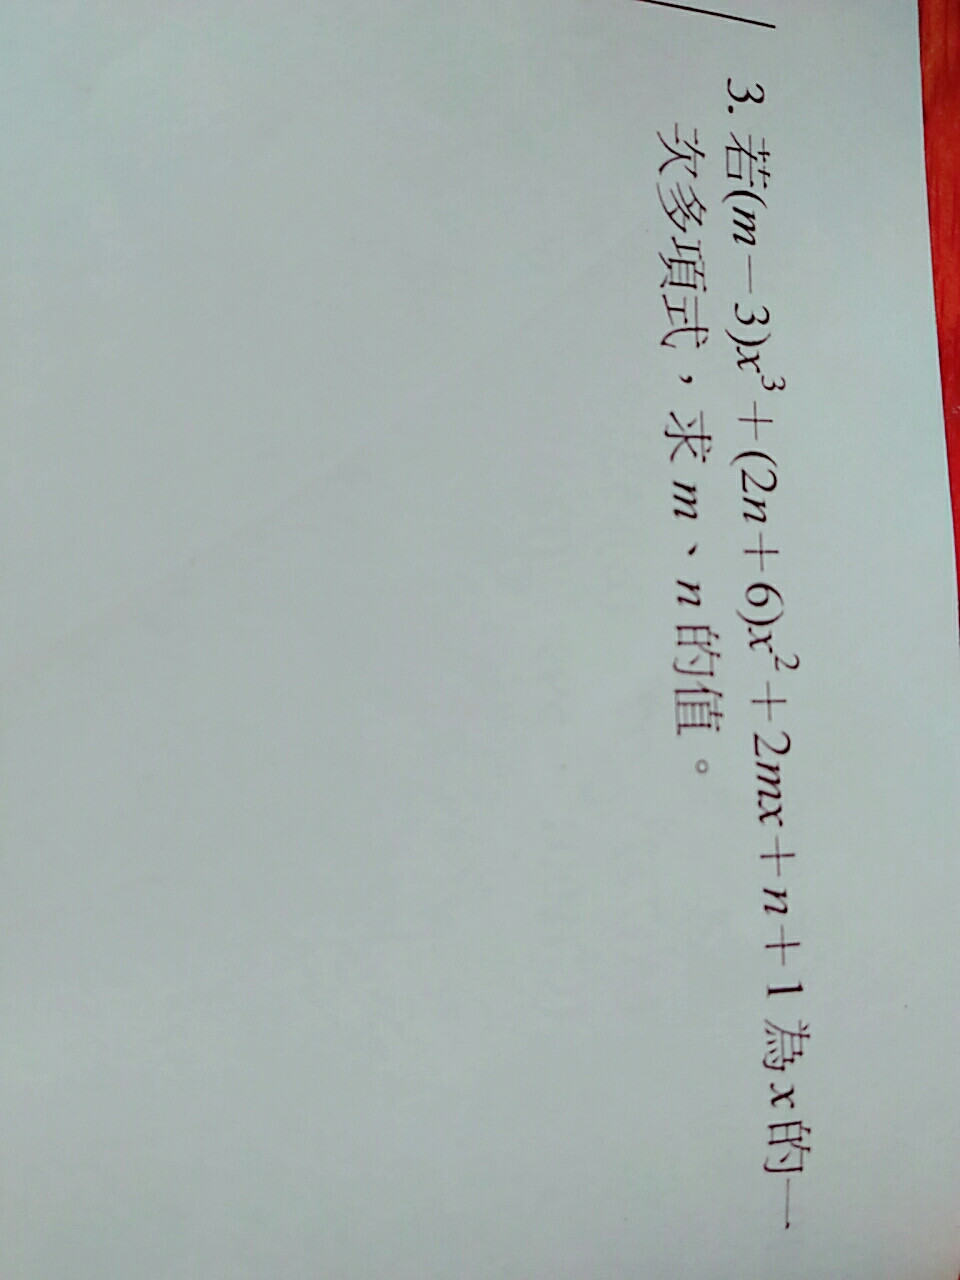 3. 若(m－3)x³＋(2n＋6)x²＋2mx＋n＋1 為 x 的一
次多項式，求 m、n 的值。